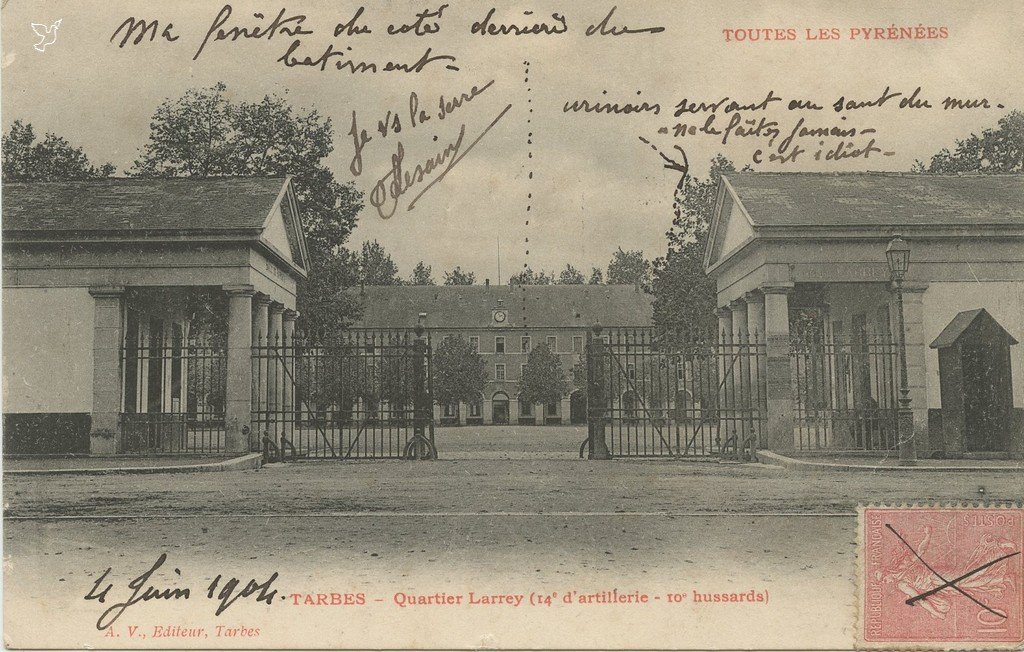 Ma fenêtre du coté derrière du
batiment
TOUTES LES PYRÉNÉES
urinoirs servant au saut du mur.
ne le faîtes jamais
c'est idiot
Je vs la serre
4 Juin 1904.
TARBES – Quartier Larrey (14e d'artillerie - 10e hussards)
A. V., Editeur, Tarbes
RÉPUBLIQUE FRANÇAISE
POSTES
10